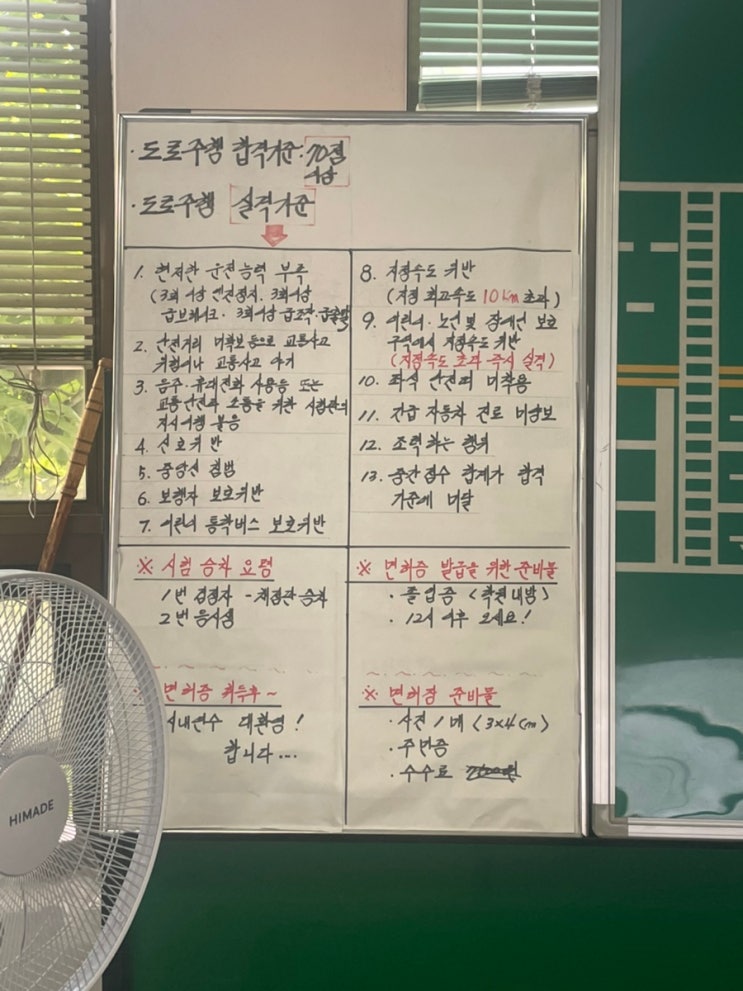 · 도로주행 합격기준: 70점
이상
· 도로주행 실격기준
1. 현저한 운전능력 부족
(3회 이상 엔진정지. 3회이상
급브레이크. 3회이상 급조작·급출발)
2. 안전거리 미확보 등으로 교통사고
위험이나 교통사고 야기
3. 음주·휴대전화 사용등 또는
교통안전과 소통을 위한 시험관의
지시이행 불응
4. 신호위반
5. 중앙선 침범
6. 보행자 보호위반
7. 어린이 통학버스 보호위반
8. 지정속도 위반
(지정 최고속도 10km 초과)
9. 어린이·노인 및 장애인 보호
구역에서 지정속도 위반
(지정속도 초과 즉시 실격)
10. 좌석 안전띠 미착용
11. 긴급 자동차 진로 미양보
12. 조력하는 행위
13. 중간점수 합계가 합격
기준에 미달
※ 시험 승차 요령
1번 검정자 - 채점관 승차
2번 응시생
※ 면허증 발급을 위한 준비물
· 졸업증 <학원내방>
· 12시 이후 오세요!
면허증 취득후~
시내연수 대환영!
합니다...
※ 면허장 준비물
· 사진 1매 <3x4cm>
· 주민증
· 수수료
HIMADE